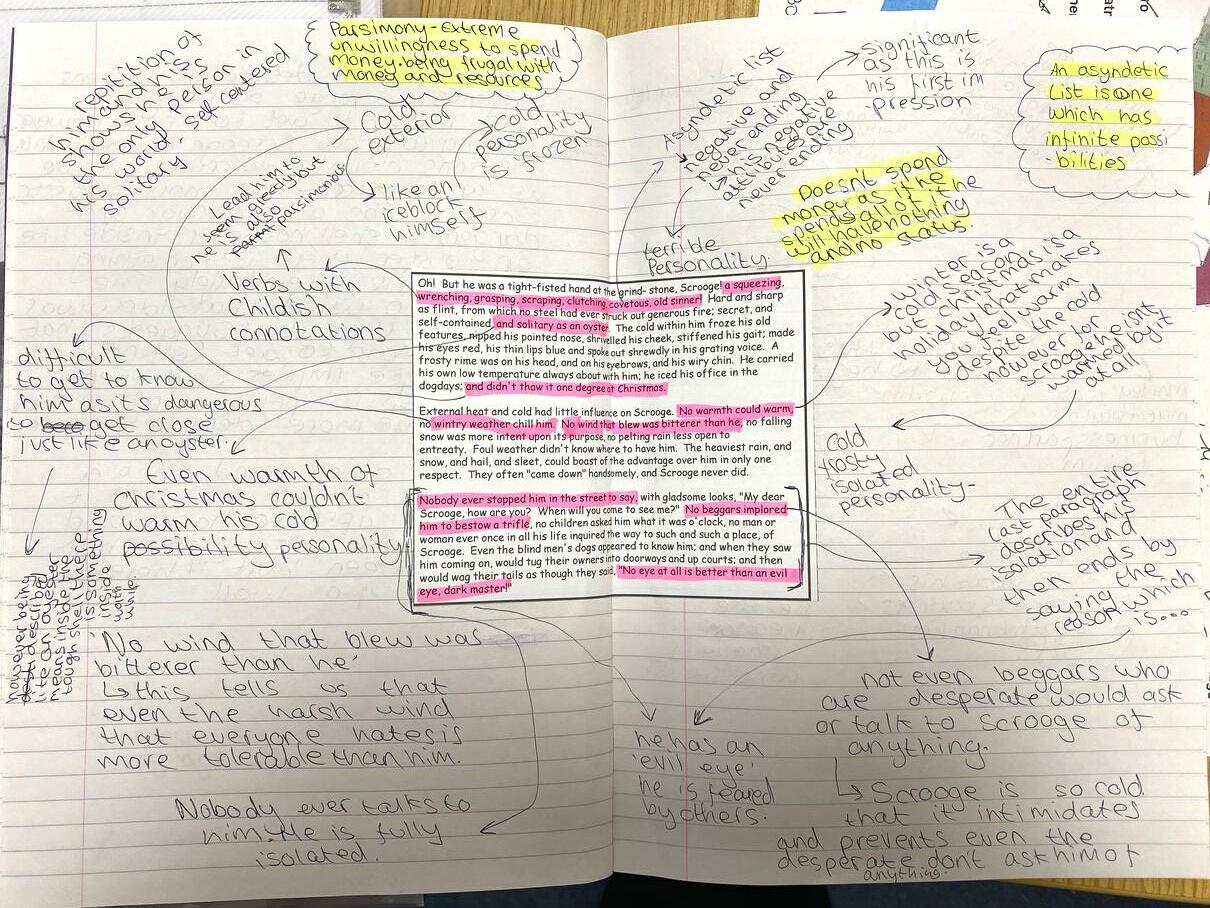 Parsimony-Extreme
unwillingness to spend
money. being frugal with
money and resources
repitition of
him and his
shows he is
the only person in
his world - self centered
solitary.
Cold
exterior
cold
personality
is 'frozen'
like an
iceblock
himself
Lead him to
seem greedy but
he is also
parsimonious
Verbs with
Childish
connotations
difficult
to get to know
him as its dangerous
to get close
just like an oyster.
however being
described
like an oyster
means inside the
tough shell there
is something
inside
worth
while.
Even warmth of
Christmas couldn't
warm his cold
possibility personality
'No wind that blew was
bitterer than he'
↳ this tells us that
even the harsh wind
that everyone hates is
more tolerable than him.
Nobody ever talks to
him. He is fully
isolated.
Asyndetic list
negative and
never ending
↳ his negative
attributes are
never ending
significant
as this is
his first im
pression
An asyndetic
List is one
which has
infinite possi
-bilities
Doesn't spend
money as if he
spends all of it he
will have nothing
and no status.
terrible
Personality.
winter is a
cold season
but christmas is a
holiday that makes
you feel warm
despite the cold
however for
scrooge he isnt
warmed by it
at all
cold
frosty
isolated
personality-
The entire
last paragraph
describes his
isolation and
then ends by
saying the
reason which
is...
he has an
'evil eye'
he is feared
by others.
not even beggars who
are desperate would ask
or talk to Scrooge of
anything.
↳ Scrooge is so cold
that it intimidates
and prevents even the
desperate don't ask him of
anything.
Oh! But he was a tight-fisted hand at the grind- stone, Scrooge! a squeezing,
wrenching, grasping, scraping, clutching, covetous, old sinner! Hard and sharp
as flint, from which no steel had ever struck out generous fire; secret, and
self-contained, and solitary as an oyster. The cold within him froze his old
features, nipped his pointed nose, shrivelled his cheek, stiffened his gait; made
his eyes red, his thin lips blue and spoke out shrewdly in his grating voice. A
frosty rime was on his head, and on his eyebrows, and his wiry chin. He carried
his own low temperature always about with him; he iced his office in the
dogdays; and didn't thaw it one degree at Christmas.
External heat and cold had little influence on Scrooge. No warmth could warm,
no wintry weather chill him. No wind that blew was bitterer than he, no falling
snow was more intent upon its purpose, no pelting rain less open to
entreaty. Foul weather didn't know where to have him. The heaviest rain, and
snow, and hail, and sleet, could boast of the advantage over him in only one
respect. They often "came down" handsomely, and Scrooge never did.
Nobody ever stopped him in the street to say, with gladsome looks, "My dear
Scrooge, how are you? When will you come to see me?" No beggars implored
him to bestow a trifle, no children asked him what it was o'clock, no man or
woman ever once in all his life inquired the way to such and such a place, of
Scrooge. Even the blind men's dogs appeared to know him; and when they saw
him coming on, would tug their owners into doorways and up courts; and then
would wag their tails as though they said, "No eye at all is better than an evil
eye, dark master!"